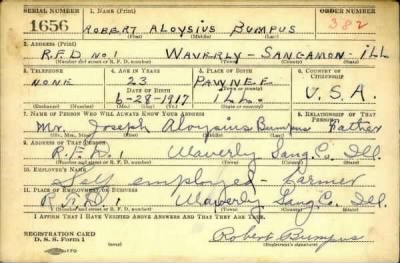 SERIAL NUMBER 1. NAME (Print) ORDER NUMBER
1656 ROBERT ALOYSIUS BUMPUS 382
(First) (Middle) (Last)
2. ADDRESS (Print)
R.F.D. No. 1 WAVERLY - SANGAMON - ILL
(Number and street or R. F. D. number) (Town) (County) (State)
3. TELEPHONE 4. AGE IN YEARS 5. PLACE OF BIRTH 6. COUNTRY OF CITIZENSHIP
NONE 23 PAWNEE
DATE OF BIRTH (Town or county) U.S.A.
6-29-1917 ILL.
(Exchange) (Number) (Mo.) (Day) (Yr.) (State or country)
7. NAME OF PERSON WHO WILL ALWAYS KNOW YOUR ADDRESS 8. RELATIONSHIP OF THAT PERSON
Mr. Joseph Aloysius Bumpus Father
(Mr., Mrs., Miss) (First) (Middle) (Last)
9. ADDRESS OF THAT PERSON
R.F.D. 1 Waverly Sang. Co. Ill.
(Number and street or R. F. D. number) (Town) (County) (State)
10. EMPLOYER'S NAME
Self employed - Farmer
11. PLACE OF EMPLOYMENT OR BUSINESS
R.F.D. 1 Waverly Sang. Co. Ill.
(Number and street or R. F. D. number) (Town) (County) (State)
I AFFIRM THAT I HAVE VERIFIED ABOVE ANSWERS AND THAT THEY ARE TRUE.
REGISTRATION CARD
D. S. S. Form 1 Robert Bumpus
(Registrant's signature)